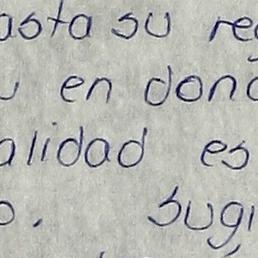 asta su re
en don
alidad es
o. sug